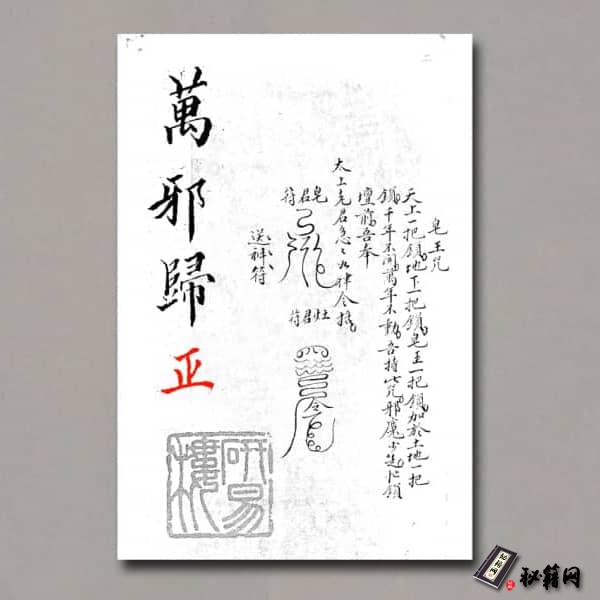 皂王咒
天上一把鎖地下一把鎖皂王一把鎖加於土地一把
鎖千年不開萬年不動吾持此咒邪魔忙鎖
壇前吾奉
太上老君急々如律令攝
皂君符
灶君符
送神符
萬邪歸正
研易樓
秘籍网
秘籍网